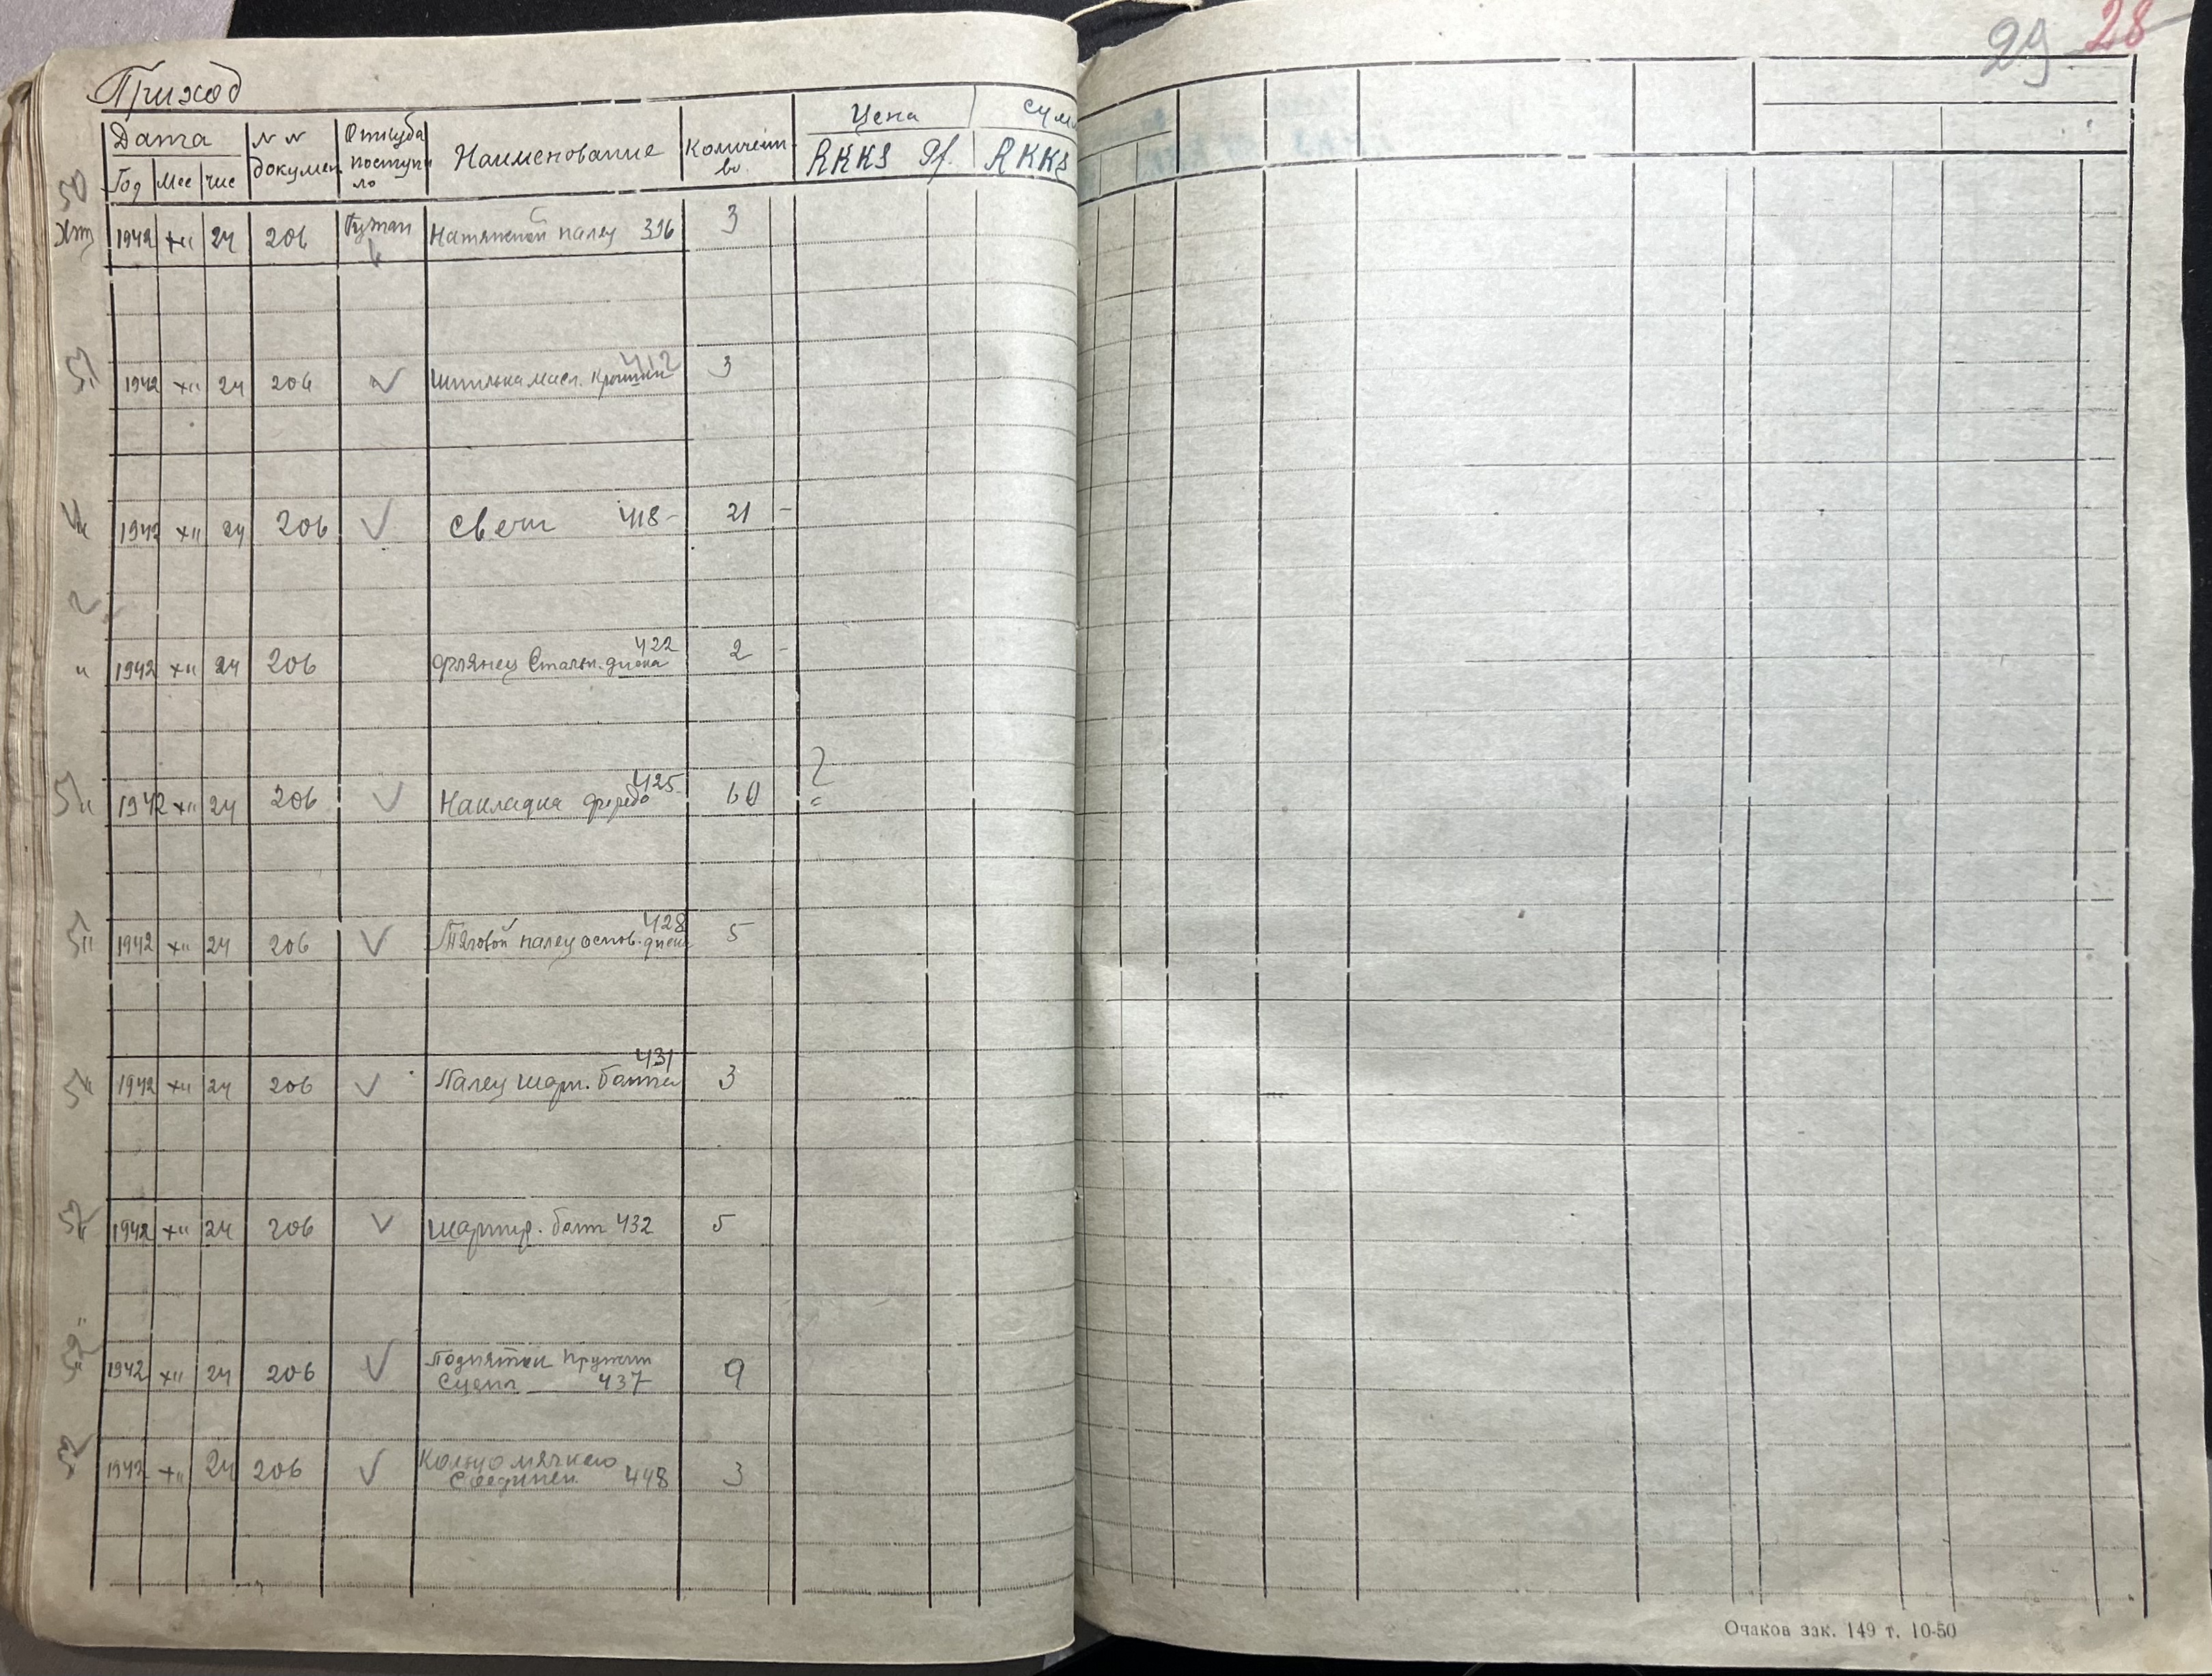 29 28
Приход
Дата
Год Мес Чис
N N докумен.
Откуда поступило
Наименование
Количеств-во.
Цена
RKKS Pf.
Сум
RKKS
50
1942 XII 24 206 Натяжной палец 316 3
51
1942 XII 24 206 √ Шпилька масл. 412 3
" 1942 XII 24 206 √ Свечи 418- 21 -
" 1942 XII 24 206 Флянец Стальн. диска 422 2 -
51 " 1942 XII 24 206 √ Накладка феродо 425. 60 ?
51 " 1942 XII 24 206 √ Тяговой палец основ. диска 428 5
5 " 1942 XII 24 206 √ Палец шарн. болта 431 3
52 " 1942 XII 24 206 √ Шарнир. болт 432 5
52 " 1942 XII 24 206 √ Подпятки пружин
Сцепл 437 9
52 1942 XII 24 206 √ Кольцо мягкого
Соединен. 448 3
Очаков зак. 149 т. 10-50